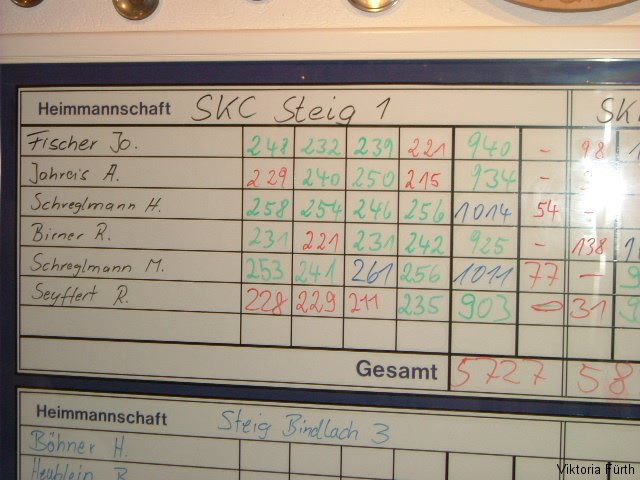 Heimmannschaft SKC Steig 1 SK
Fischer Jo. 248 232 239 221 940 - 98 1
Jahreis A. 229 240 250 215 934 - -
Schreglmann H. 258 254 246 256 1014 54 -
Birner R. 231 221 231 242 925 - 138
Schreglmann M. 253 241 261 256 1011 77 - 9
Seyffert R. 228 229 211 235 903 - 31 9
Gesamt 5727 58
Heimmannschaft Steig Bindlach 3
Böhner H.
Heublein R.
Viktoria Fürth